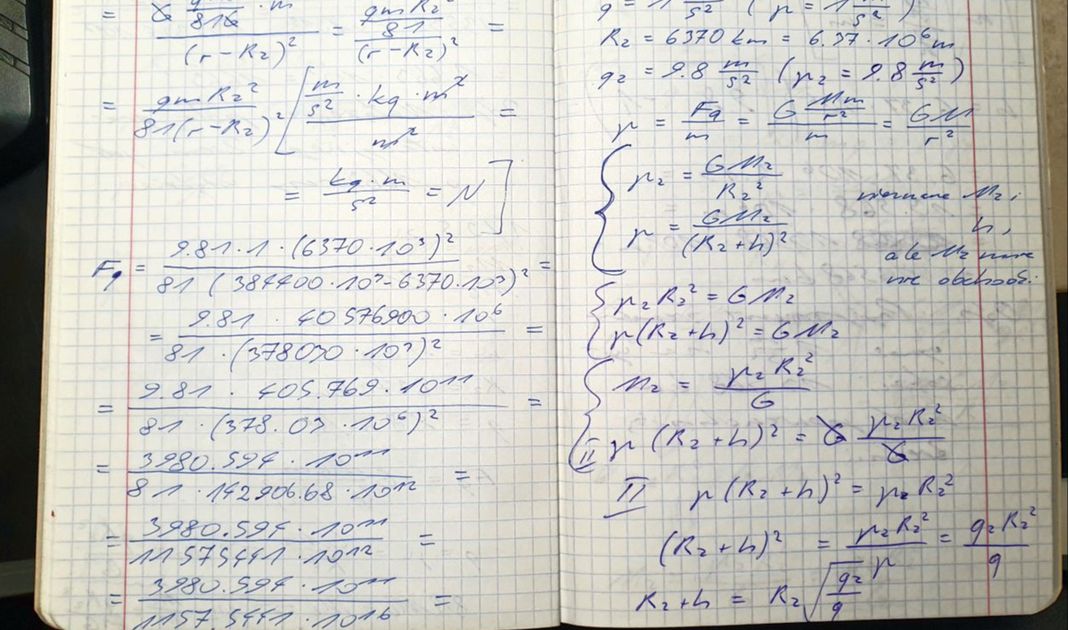 = G gm/81G · m / (r-R₂)² = gmR₂²/81 / (r-R₂)² =
= gmR₂² / 81(r-R₂)² [ m/s² · kg · m² / m² =
= kg·m / s² = N ]
Fg = 9.81 · 1 · (6370·10³)² / 81 (384400·10³-6370·10³)² =
= 9.81 · 40576900 · 10⁶ / 81 · (378030 · 10³)² =
= 9.81 · 405.769 · 10¹¹ / 81 · (378.03 · 10⁶)² =
= 3980.594 · 10¹¹ / 81 · 142906.68 · 10¹² =
= 3980.594 · 10¹¹ / 11575441 · 10¹² =
= 3980.594 · 10¹¹ / 1157.5441 · 10¹⁶ =
g = 1 m/s² ( γ = 1 m/s² )
R₂ = 6370 km = 6.37 · 10⁶ m
g₂ = 9.8 m/s² ( γ₂ = 9.8 m/s² )
γ = Fg/m = G Mm/r² / m = GM/r²
γ₂ = GM₂ / R₂²
nieznane M₂ i
γ = GM₂ / (R₂+h)²
h,
ale M₂ mnie
nie obchodzi.
γ₂R₂² = GM₂
γ(R₂+h)² = GM₂
M₂ = γ₂R₂² / G
II γ (R₂+h)² = G γ₂R₂² / G
II γ(R₂+h)² = γ₂R₂²
(R₂+h)² = γ₂R₂² / γ = g₂R₂² / g
R₂+h = R₂ √(g₂/g)